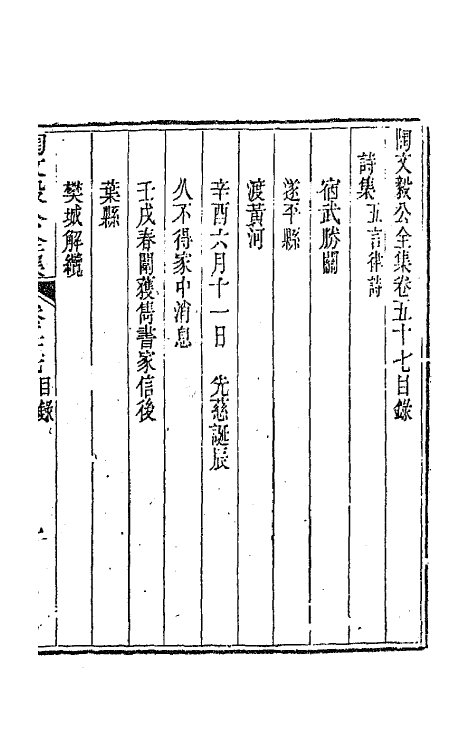 陶文毅公全集卷五十七目錄
詩集五言律詩
宿武勝關
遂平縣
渡黃河
辛酉六月十一日 先慈誕辰
久不得家中消息
壬戌春闈獲雋書家信後
葉縣
樊城解纜
陶文毅公全集 卷五十七目錄 一